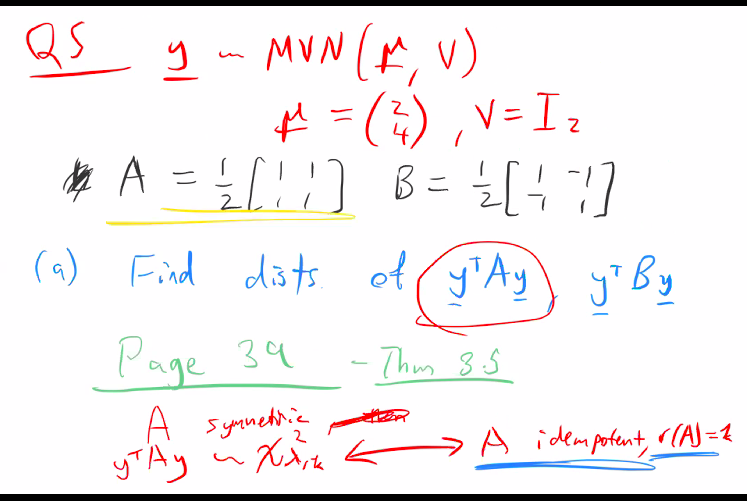 Q5 y ~ MVN(μ, V)
μ = (2 4), V = I₂
A = 1/2 [1 1 1 1] B = 1/2 [1 -1 -1 1]
(a) Find dists. of yᵀAy, yᵀBy
Page 39 - Thm 3.5
A symmetric
yᵀAy ~ χ²λ,k ⟷ A idempotent, r(A)=k